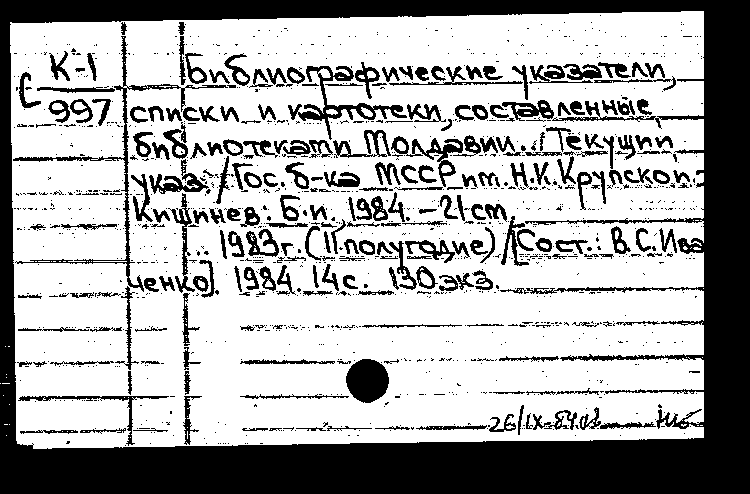 К-1
С
997
Библиографические указатели,
списки и картотеки, составленные
библиотеками Молдавии... : Текущий
указ. / Гос. б-ка МССР им. Н.К.Крупской. -
Кишинев: Б.и., 1984. - 21 cm.
... 1983г. (II полугодие) / [Сост.: В.С.Ива
ченко]. 1984. 14с. 130 экз.
26/IX-84